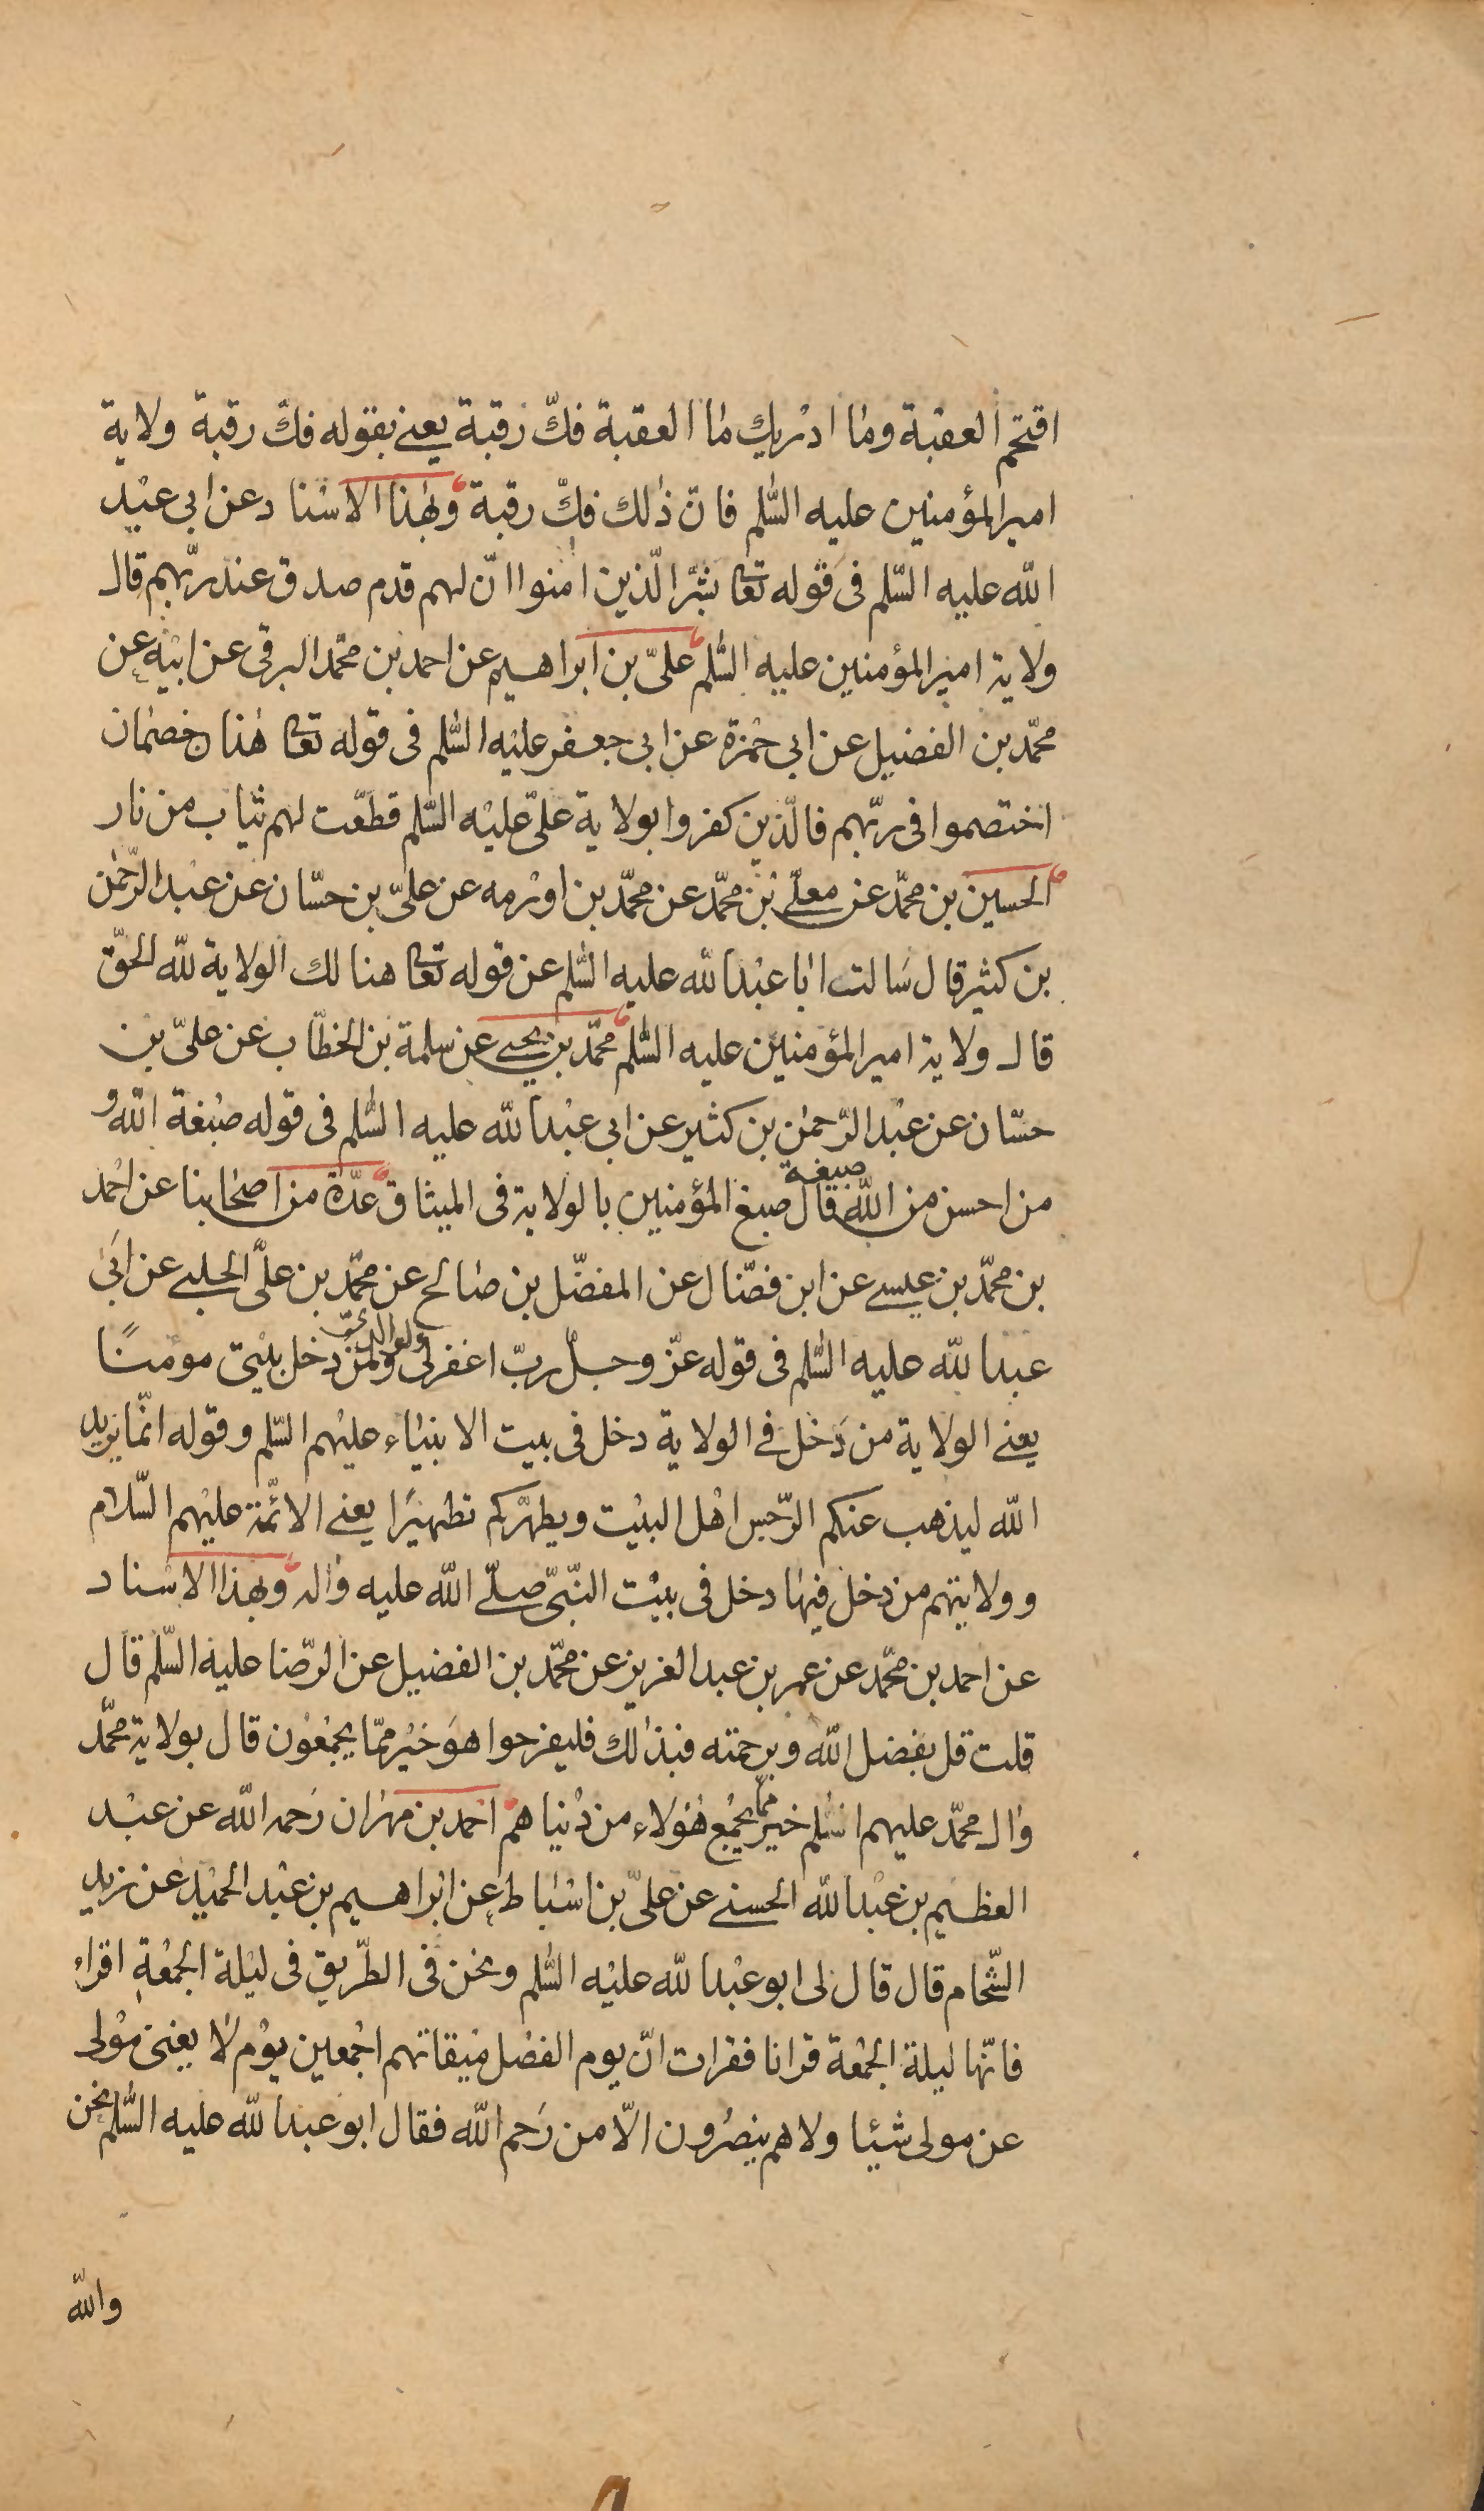 اقتحم العقبة وما ادريك ما العقبة فكّ رقبة يعنى بقوله فكّ رقبة ولاية
امير المؤمنين عليه السّلم فانّ ذلك فكّ رقبة وبهذا الاسناد عن ابى عبد
الله عليه السّلم فى قوله تعا بشّر الّذين امنوا انّ لهم قدم صدق عند ربّهم قال
ولاية امير المؤمنين عليه السّلم علىّ بن ابراهيم عن احمد بن محمّد البرقى عن ابيه عن
محمّد بن الفضيل عن ابى حمزة عن ابى جعفر عليه السّلم فى قوله تعا هذان خصمان
اختصموا فى ربّهم فالّذين كفروا بولاية علىّ عليه السّلم قطّعت لهم ثياب من نار
الحسين بن محمّد عن معلّى بن محمّد عن محمّد بن اورمه عن علىّ بن حسّان عن عبد الرّحمن
بن كثير قال سالت ابا عبد الله عليه السّلم عن قوله تعا هنالك الولاية لله الحقّ
قال ولاية امير المؤمنين عليه السّلم محمّد بن يحيى عن سلمة بن الخطّاب عن علىّ بن
حسّان عن عبد الرّحمن بن كثير عن ابى عبد الله عليه السّلم فى قوله صبغة الله و
من احسن من الله صبغة قال صبغ المؤمنين بالولاية فى الميثاق عدّة من اصحابنا عن احمد
بن محمّد بن عيسى عن ابن فضّال عن المفضّل بن صالح عن محمّد بن علىّ الحلبى عن ابى
عبد الله عليه السّلم فى قوله عزّ وجلّ ربّ اغفر لى ولوالدىّ ولمن دخل بيتى مومنًا
يعنى الولاية من دخل فى الولاية دخل فى بيت الانبياء عليهم السّلم وقوله انّما يريد
الله ليذهب عنكم الرّجس اهل البيت ويطهّركم تطهيرًا يعنى الائمّة عليهم السّلام
وولايتهم من دخل فيها دخل فى بيت النّبىّ صلّى الله عليه واله وبهذا الاسناد
عن احمد بن محمّد عن عمر بن عبد العزيز عن محمّد بن الفضيل عن الرّضا عليه السّلم قال
قلت قل بفضل الله وبرحمته فبذلك فليفرحوا هو خير ممّا يجمعون قال بولاية محمّد
وال محمّد عليهم السّلم خير ممّا يجمع هؤلاء من دنياهم احمد بن مهران رحمه الله عن عبد
العظيم بن عبد الله الحسنى عن علىّ بن اسباط عن ابراهيم بن عبد الحميد عن زيد
الشّحام قال قال لى ابو عبد الله عليه السّلم ونحن فى الطّريق فى ليلة الجمعة اقراء
فانّها ليلة الجمعة قرانا فقرات انّ يوم الفصل ميقاتهم اجمعين يوم لا يغنى مولى
عن مولى شيئا ولا هم ينصرون الّا من رحم الله فقال ابو عبد الله عليه السّلم نحن
والله